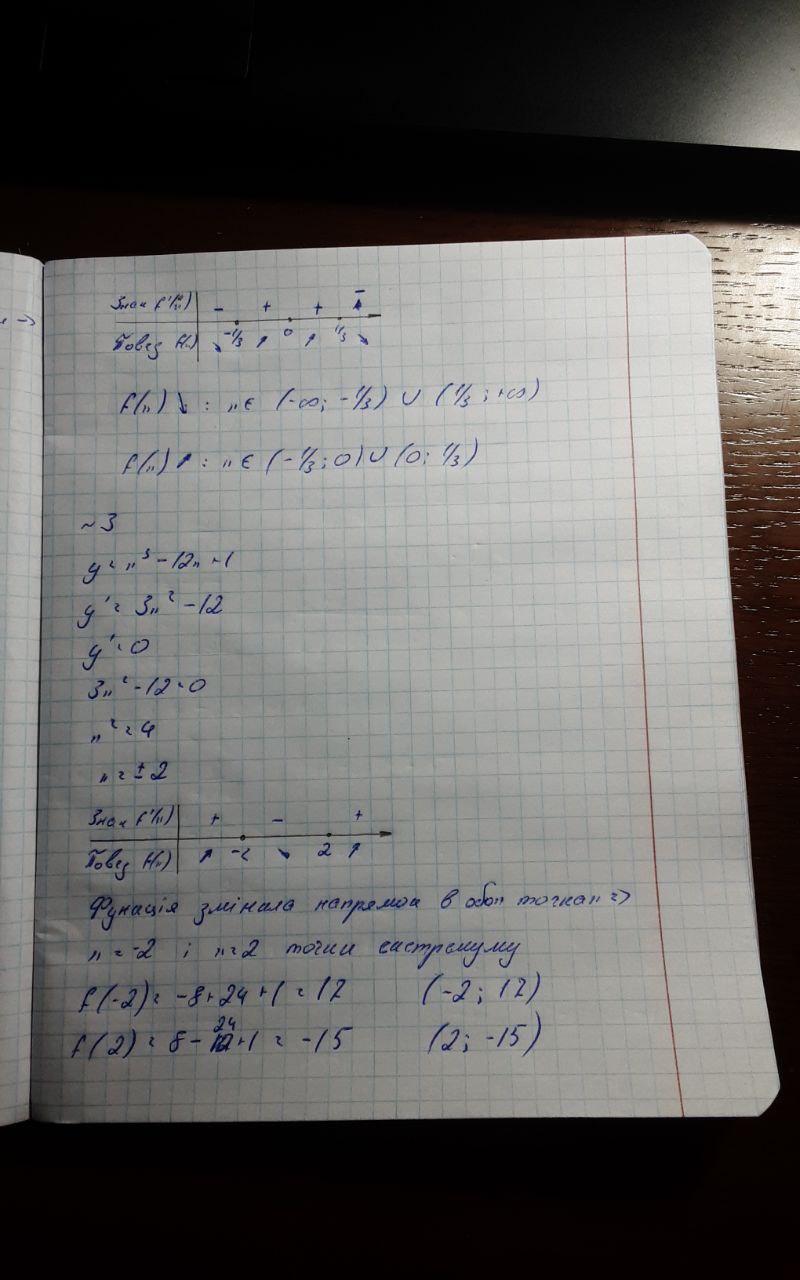 Знак f'(x) | - + + -
Повед f(x) | ↘ -1/3 ↗ 0 ↗ 1/3 ↘
f(x) ↘ : x ∈ (-∞; -1/3) ∪ (1/3; +∞)
f(x) ↗ : x ∈ (-1/3; 0) ∪ (0; 1/3)
~3
y = x³ - 12x + 1
y' = 3x² - 12
y' = 0
3x² - 12 = 0
x² = 4
x = ± 2
Знак f'(x) | + - +
Повед f(x) | ↗ -2 ↘ 2 ↗
Функція змінила напрямок в обох точках =>
x = -2 і x = 2 точки екстремуму
f(-2) = -8 + 24 + 1 = 17 (-2; 17)
f(2) = 8 - 24 + 1 = -15 (2; -15)